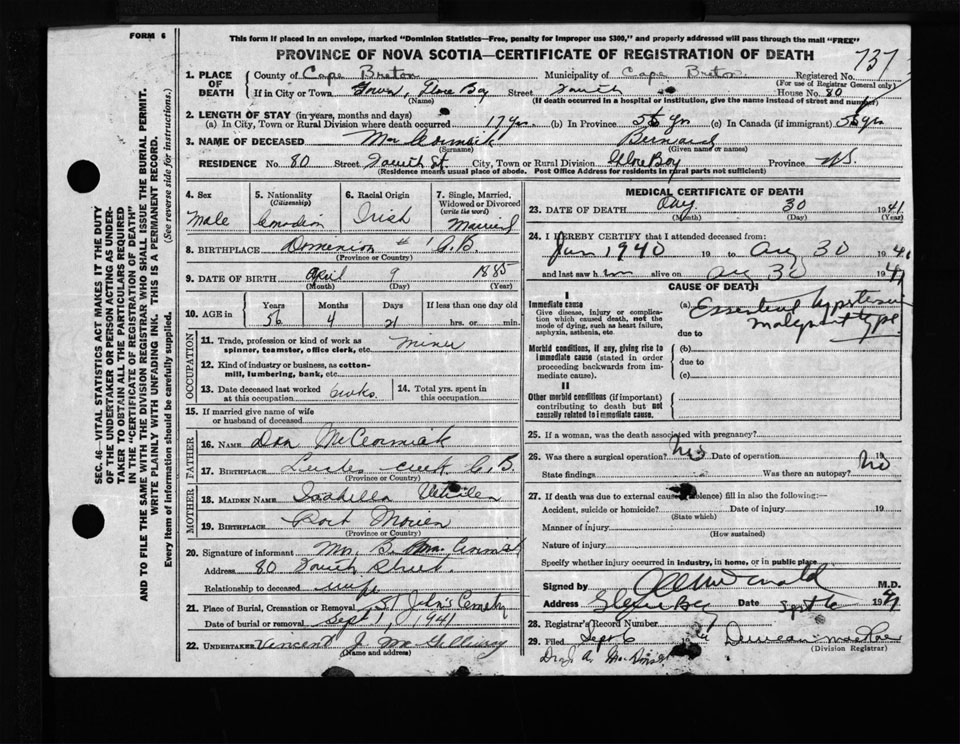 FORM 6
This form if placed in an envelope, marked "Dominion Statistics—Free, penalty for improper use $300," and properly addressed will pass through the mail "FREE"
PROVINCE OF NOVA SCOTIA—CERTIFICATE OF REGISTRATION OF DEATH
737
1. PLACE OF DEATH
County of Cape Breton Municipality of Cape Breton Registered No.
(For use of Registrar General only)
If in City or Town Town, Glace Bay Street Fourth House No. 80
(Name) (If death occurred in a hospital or institution, give the name instead of street and number)
2. LENGTH OF STAY (in years, months and days)
(a) In City, Town or Rural Division where death occurred 17 yrs. (b) In Province 56 yrs (c) In Canada (if immigrant) 56 yrs
3. NAME OF DECEASED Mac Cormick Bernard
(Surname) (Given name or names)
RESIDENCE No. 80 Street Fourth St. City, Town or Rural Division Glace Bay Province N.S.
(Residence means usual place of abode. Post Office Address for residents in rural parts not sufficient)
4. Sex
Male
5. Nationality
(Citizenship)
Canadian
6. Racial Origin
Irish
7. Single, Married, Widowed or Divorced
(write the word)
Married
8. BIRTHPLACE Dominion # 1 C.B.
(Province or Country)
9. DATE OF BIRTH April 9 1885
(Month) (Day) (Year)
10. AGE in
Years Months Days If less than one day old
56 4 21 hrs. or min.
OCCUPATION
11. Trade, profession or kind of work as spinner, teamster, office clerk, etc. miner
12. Kind of industry or business, as cotton-mill, lumbering, bank, etc.
13. Date deceased last worked at this occupation
14. Total yrs. spent in this occupation
15. If married give name of wife or husband of deceased
FATHER
16. NAME Dan McCormick
17. BIRTHPLACE creek C.B.
(Province or Country)
MOTHER
18. MAIDEN NAME Isabella
19. BIRTHPLACE Port Morien
(Province or Country)
20. Signature of informant Mrs. B.
Address 80 Fourth Street.
Relationship to deceased wife
21. Place of Burial, Cremation or Removal St John's Cemetry
Date of burial or removal Sept 1, 1941
22. UNDERTAKER Vincent J. McGillivray
(Name and address)
MEDICAL CERTIFICATE OF DEATH
23. DATE OF DEATH Aug. 30 1941
(Month) (Day) (Year)
24. I HEREBY CERTIFY that I attended deceased from
Jan 1940 19 to Aug 30 1941
and last saw him alive on Aug 30 1941
CAUSE OF DEATH
I
Immediate cause
Give disease, injury or complication which caused death, not the mode of dying, such as heart failure, asphyxia, asthenia, etc.
(a) Essential hypertension
malignant type
due to
Morbid conditions, if any, giving rise to immediate cause (stated in order proceeding backwards from immediate cause).
(b)
due to
(c)
II
Other morbid conditions (if important) contributing to death but not causally related to immediate cause.
25. If a woman, was the death associated with pregnancy?
26. Was there a surgical operation? No Date of operation 19
State findings Was there an autopsy? No
27. If death was due to external causes (violence) fill in also the following:—
Accident, suicide or homicide? Date of injury 19
(State which)
Manner of injury
(How sustained)
Nature of injury
Specify whether injury occurred in industry, in home, or in public place
Signed by M.D.
Address Glace Bay Date Sept 6 1941
28. Registrar's Record Number
29. Filed Sept 6 Duncan MacRae
(Division Registrar)
SEC. 46—VITAL STATISTICS ACT MAKES IT THE DUTY
OF THE UNDERTAKER OR PERSON ACTING AS UNDER-
TAKER TO OBTAIN ALL THE PARTICULARS REQUIRED
IN THE "CERTIFICATE OF REGISTRATION OF DEATH"
AND TO FILE THE SAME WITH THE DIVISION REGISTRAR WHO SHALL ISSUE THE BURIAL PERMIT.
WRITE PLAINLY WITH UNFADING INK. THIS IS A PERMANENT RECORD.
Every item of information should be carefully supplied. (See reverse side for instructions.)